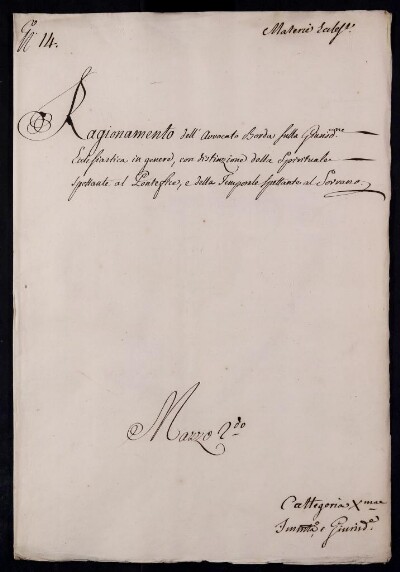 N.º 14.
Materie Eccles.e
Ragionamento dell'Avvocato Borda sulla Giurisd.ne
Eclesiastica in genere, con distinzione della Spirituale
spettante al Pontefice, e della Temporale spettante al Sovrano
Mazzo 2.do
Cattegoria X.mae
e Giurisd.e